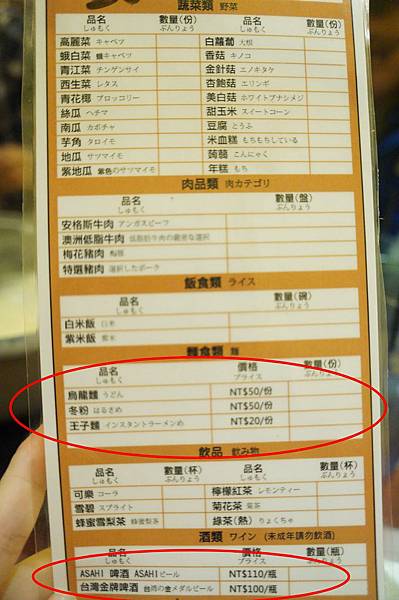 蔬菜類 野菜
品名 數量(份) 品名 數量(份)
しゅもく ぶんりょう しゅもく ぶんりょう
高麗菜 キャベツ 白蘿蔔 大根
娥白菜 娥キャベツ 香菇 キノコ
青江菜 チンゲンサイ 金針菇 エノキタケ
西生菜 レタス 杏鮑菇 エリンギ
青花椰 ブロッコリー 美白菇 ホワイトブナシメジ
絲瓜 ヘチマ 甜玉米 スイートコーン
南瓜 カボチャ 豆腐 とうふ
芋角 タロイモ 米血糕 もちもちしている
地瓜 サツマイモ 蒟蒻 こんにゃく
紫地瓜 紫色のサツマイモ 年糕 もち
肉品類 肉カテゴリ
品名 數量(盤)
しゅもく ぶんりょう
安格斯牛肉 アンガスビーフ
澳洲低脂牛肉 低脂肪牛肉の厳密な選択
梅花豬肉 梅豚
特選豬肉 選択したポーク
飯食類 ライス
品名 數量(碗)
しゅもく ぶんりょう
白米飯 白米
紫米飯 紫米
麵食類 麺
品名 價格 數量(份)
しゅもく プライス ぶんりょう
烏龍麵 うどん NT$50/份
冬粉 はるさめ NT$50/份
王子麵 インスタントラーメンめ NT$20/份
飲品 飲み物
品名 數量(杯) 品名 數量(杯)
しゅもく ぶんりょう しゅもく ぶんりょう
可樂 コーラ 檸檬紅茶 レモンティー
雪碧 スプライト 菊花茶 菊茶
蜂蜜雪梨茶 蜂蜜梨茶 綠茶(熱) りょくちゃ
酒類 ワイン (未成年請勿飲酒)
品名 價格 數量(瓶)
しゅもく プライス ぶんりょう
ASAHI 啤酒 ASAHIビール NT$110/瓶
台灣金牌啤酒 台湾の金メダルビール NT$100/瓶